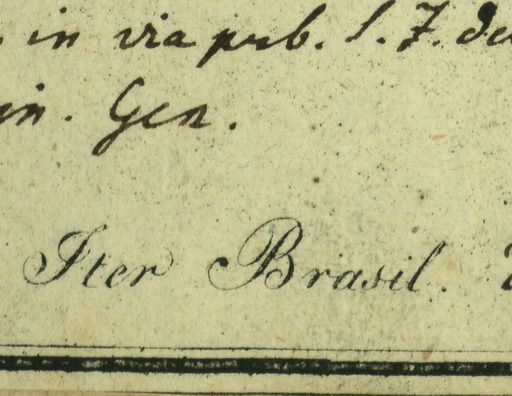 in via pub. S. J. de
in. Gen.
Iter Brasil.